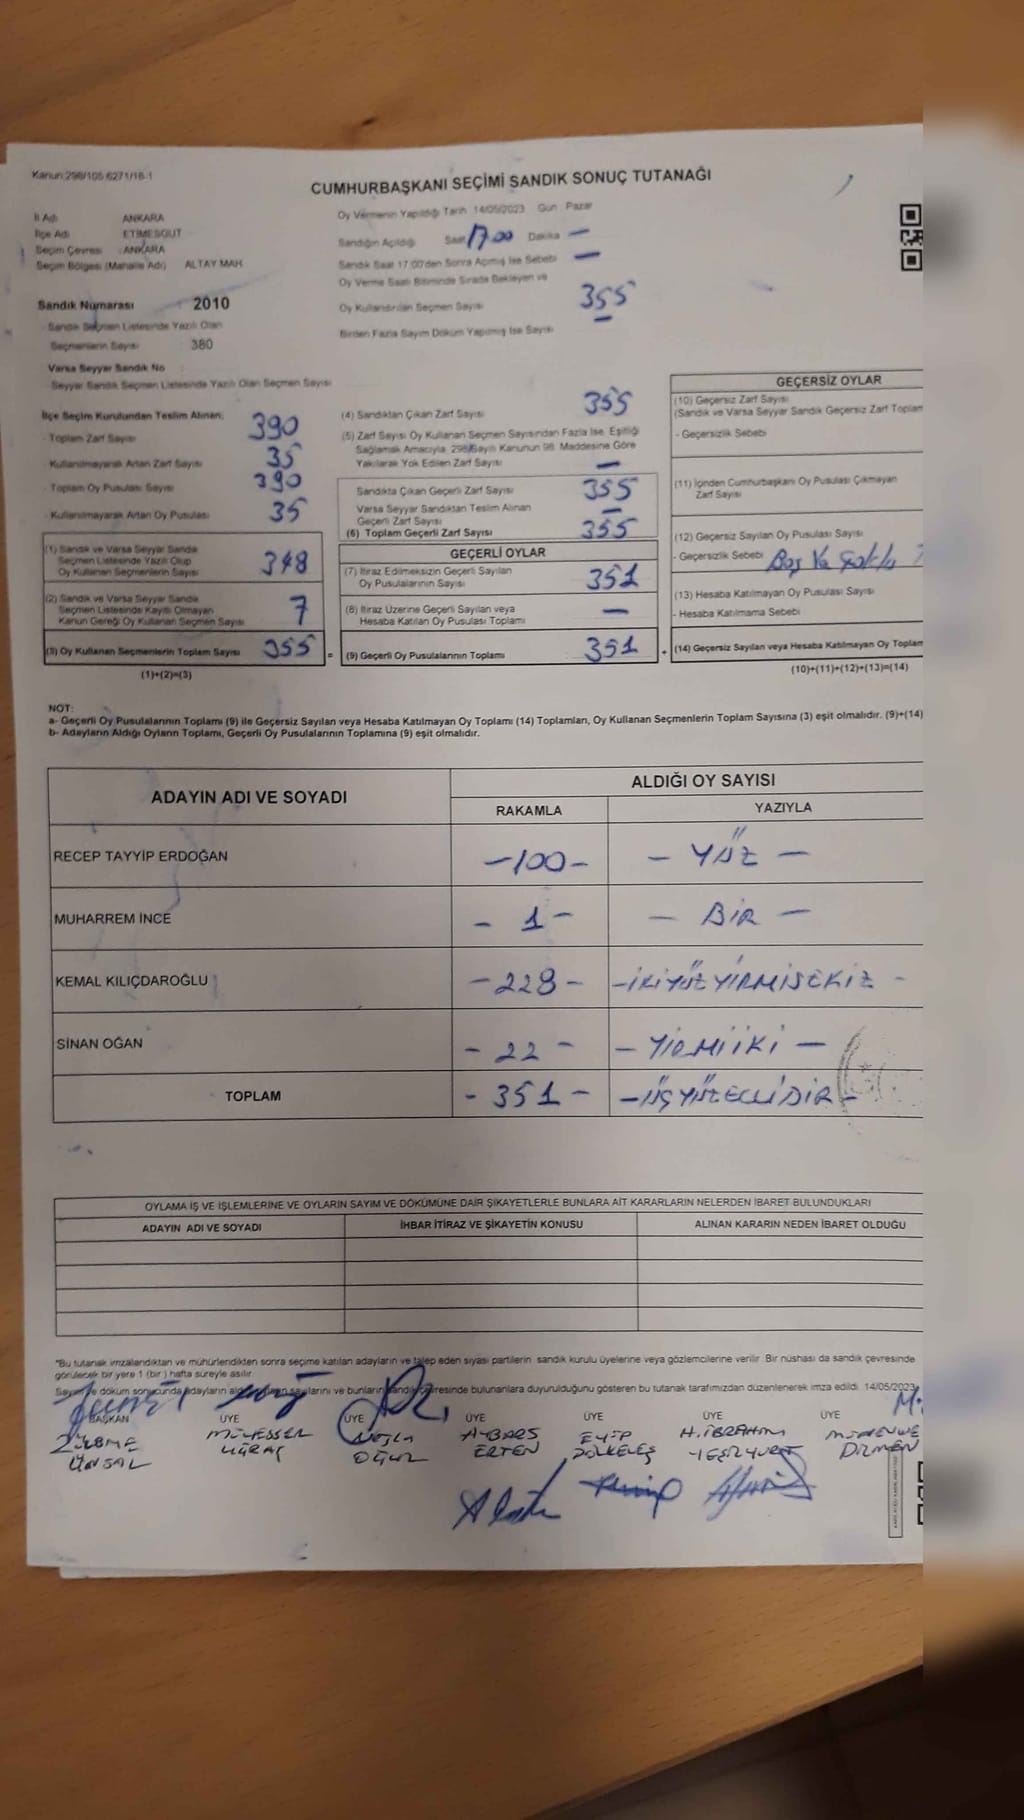 Kanun:298/105 6271/16-1
CUMHURBAŞKANI SEÇİMİ SANDIK SONUÇ TUTANAĞI
İl Adı ANKARA
İlçe Adı ETİMESGUT
Seçim Çevresi ANKARA
Seçim Bölgesi (Mahalle Adı) ALTAY MAH
Oy Vermenin Yapıldığı Tarih 14/05/2023 Gün Pazar
Sandığın Açıldığı Saat 17.00 Dakika —
Sandık Saat 17:00'den Sonra Açmış İse Sebebi —
Oy Verme Saati Bitiminde Sırada Bekleyen ve
Oy Kullandırılan Seçmen Sayısı 355
Birden Fazla Sayım Döküm Yapılmış İse Sayısı —
Sandık Numarası 2010
- Sandık Seçmen Listesinde Yazılı Olan
Seçmenlerin Sayısı 380
Varsa Seyyar Sandık No
- Seyyar Sandık Seçmen Listesinde Yazılı Olan Seçmen Sayısı
İlçe Seçim Kurulundan Teslim Alınan:
- Toplam Zarf Sayısı 390
- Kullanılmayarak Artan Zarf Sayısı 35
- Toplam Oy Pusulası Sayısı 390
- Kullanılmayarak Artan Oy Pusulası 35
(1) Sandık ve Varsa Seyyar Sandık
Seçmen Listesinde Yazılı Olup
Oy Kullanan Seçmenlerin Sayısı 348
(2) Sandık ve Varsa Seyyar Sandık
Seçmen Listesinde Kayıtlı Olmayan
Kanun Gereği Oy Kullanan Seçmen Sayısı 7
(3) Oy Kullanan Seçmenlerin Toplam Sayısı 355 =
(1)+(2)=(3)
(4) Sandıktan Çıkan Zarf Sayısı 355
(5) Zarf Sayısı Oy Kullanan Seçmen Sayısından Fazla İse, Eşitliği
Sağlamak Amacıyla 298 Sayılı Kanunun 98. Maddesine Göre
Yakılarak Yok Edilen Zarf Sayısı —
Sandıkta Çıkan Geçerli Zarf Sayısı 355
Varsa Seyyar Sandıktan Teslim Alınan
Geçerli Zarf Sayısı —
(6) Toplam Geçerli Zarf Sayısı 355
GEÇERLİ OYLAR
(7) İtiraz Edilmeksizin Geçerli Sayılan
Oy Pusulalarının Sayısı 351
(8) İtiraz Üzerine Geçerli Sayılan veya
Hesaba Katılan Oy Pusulası Toplamı —
(9) Geçerli Oy Pusulalarının Toplamı 351 +
GEÇERSİZ OYLAR
(10) Geçersiz Zarf Sayısı
(Sandık ve Varsa Seyyar Sandık Geçersiz Zarf Toplam
- Geçersizlik Sebebi
(11) İçinden Cumhurbaşkanı Oy Pusulası Çıkmayan
Zarf Sayısı
(12) Geçersiz Sayılan Oy Pusulası Sayısı
- Geçersizlik Sebebi Boş Ve
(13) Hesaba Katılmayan Oy Pusulası Sayısı
- Hesaba Katılmama Sebebi
(14) Geçersiz Sayılan veya Hesaba Katılmayan Oy Toplam
(10)+(11)+(12)+(13)=(14)
NOT:
a- Geçerli Oy Pusulalarının Toplamı (9) ile Geçersiz Sayılan veya Hesaba Katılmayan Oy Toplamı (14) Toplamları, Oy Kullanan Seçmenlerin Toplam Sayısına (3) eşit olmalıdır. (9)+(14)
b- Adayların Aldığı Oyların Toplamı, Geçerli Oy Pusulalarının Toplamına (9) eşit olmalıdır.
ADAYIN ADI VE SOYADI ALDIĞI OY SAYISI
RAKAMLA YAZIYLA
RECEP TAYYİP ERDOĞAN -100- - YÜZ -
MUHARREM İNCE - 1 - - BİR -
KEMAL KILIÇDAROĞLU -228- -İKİYÜZYİRMİSEKİZ -
SİNAN OĞAN - 22 - - YİRMİİKİ -
TOPLAM - 351 - -ÜÇYÜZELLİBİR-
OYLAMA İŞ VE İŞLEMLERİNE VE OYLARIN SAYIM VE DÖKÜMÜNE DAİR ŞİKAYETLERLE BUNLARA AİT KARARLARIN NELERDEN İBARET BULUNDUKLARI
ADAYIN ADI VE SOYADI İHBAR İTİRAZ VE ŞİKAYETİN KONUSU ALINAN KARARIN NEDEN İBARET OLDUĞU
*Bu tutanak imzalandıktan ve mühürlendikten sonra seçime katılan adayların ve talep eden siyasi partilerin sandık kurulu üyelerine veya gözlemcilerine verilir. Bir nüshası da sandık çevresinde
görülecek bir yere 1 (bir) hafta süreyle asılır.
Sayım ve döküm sonucunda adayların aldığı oyun sayılarını ve bunların sandık çevresinde bulunanlara duyurulduğunu gösteren bu tutanak tarafımızdan düzenlenerek imza edildi. 14/05/2023
BAŞKAN ÜYE ÜYE ÜYE ÜYE ÜYE ÜYE
MÜYESSER AYBARS EYÜP H.İBRAHİM
ÜNSAL OĞUZ ERTEN YEŞİLYURT DİRMEN